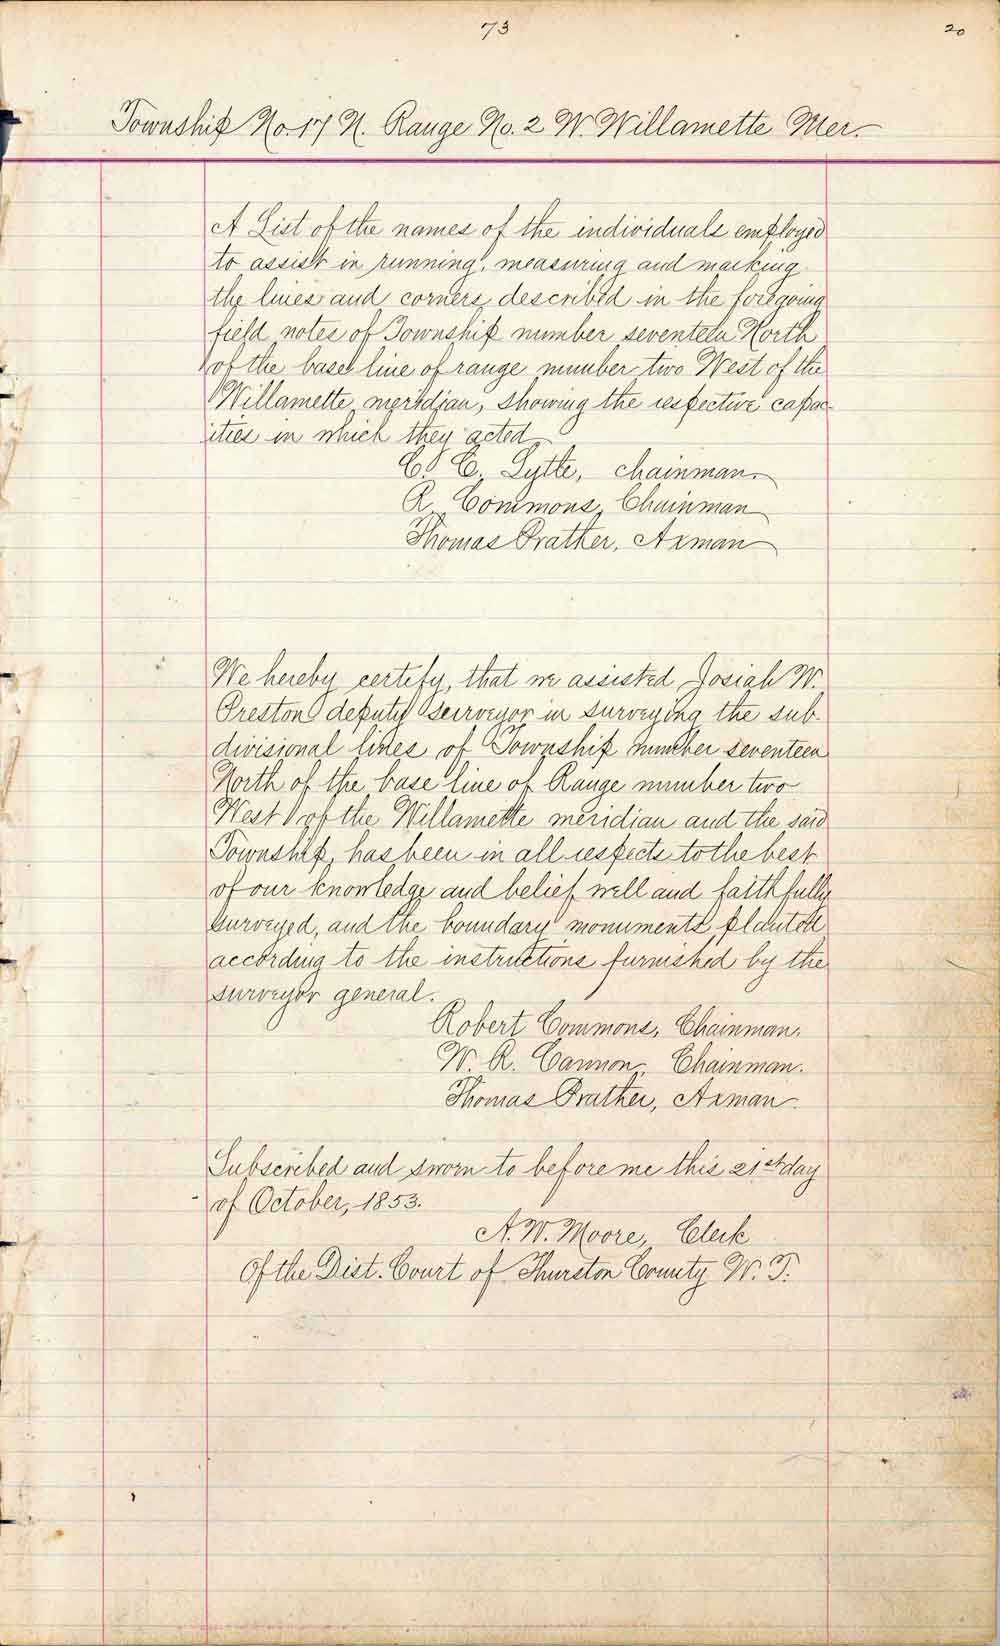 73
20
Township No. 17 N. Range No. 2 W. Willamette Mer.
A List of the names of the individuals employed
to assist in running, measuring and marking
the lines and corners described in the foregoing
field notes of Township number seventeen North
of the base line of range number two West of the
Willamette meridian, showing the respective capac-
ities in which they acted
C. C. Lytle, chainman.
R. Commons, Chainman
Thomas Prather, Axman
We hereby certify, that we assisted Josiah W.
Preston deputy surveyor in surveying the sub-
divisional lines of Township number seventeen
North of the base line of Range number two
West of the Willamette meridian and the said
Township, has been in all respects to the best
of our knowledge and belief, well and faithfully
surveyed, and the boundary monuments planted
according to the instructions furnished by the
surveyor general.
Robert Commons, Chainman.
W. R. Cannon, Chainman.
Thomas Prather, Axman.
Subscribed and sworn to before me this 21st day
of October, 1853.
A. W. Moore, Clerk
Of the Dist. Court of Thurston County W. T.